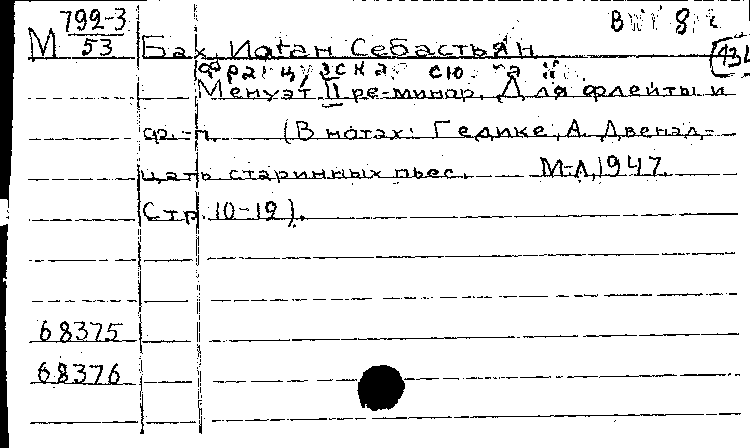 792-3
М 53 Бах, Иоган Себастьян
Французская сю
Менуэт II ре-минор. Для флейты и
ф.-п. (В нотах: Гедике, А. Двенад-
цать старинных пьес. М-Л, 1947.
Стр. 10-12).
68375
68376